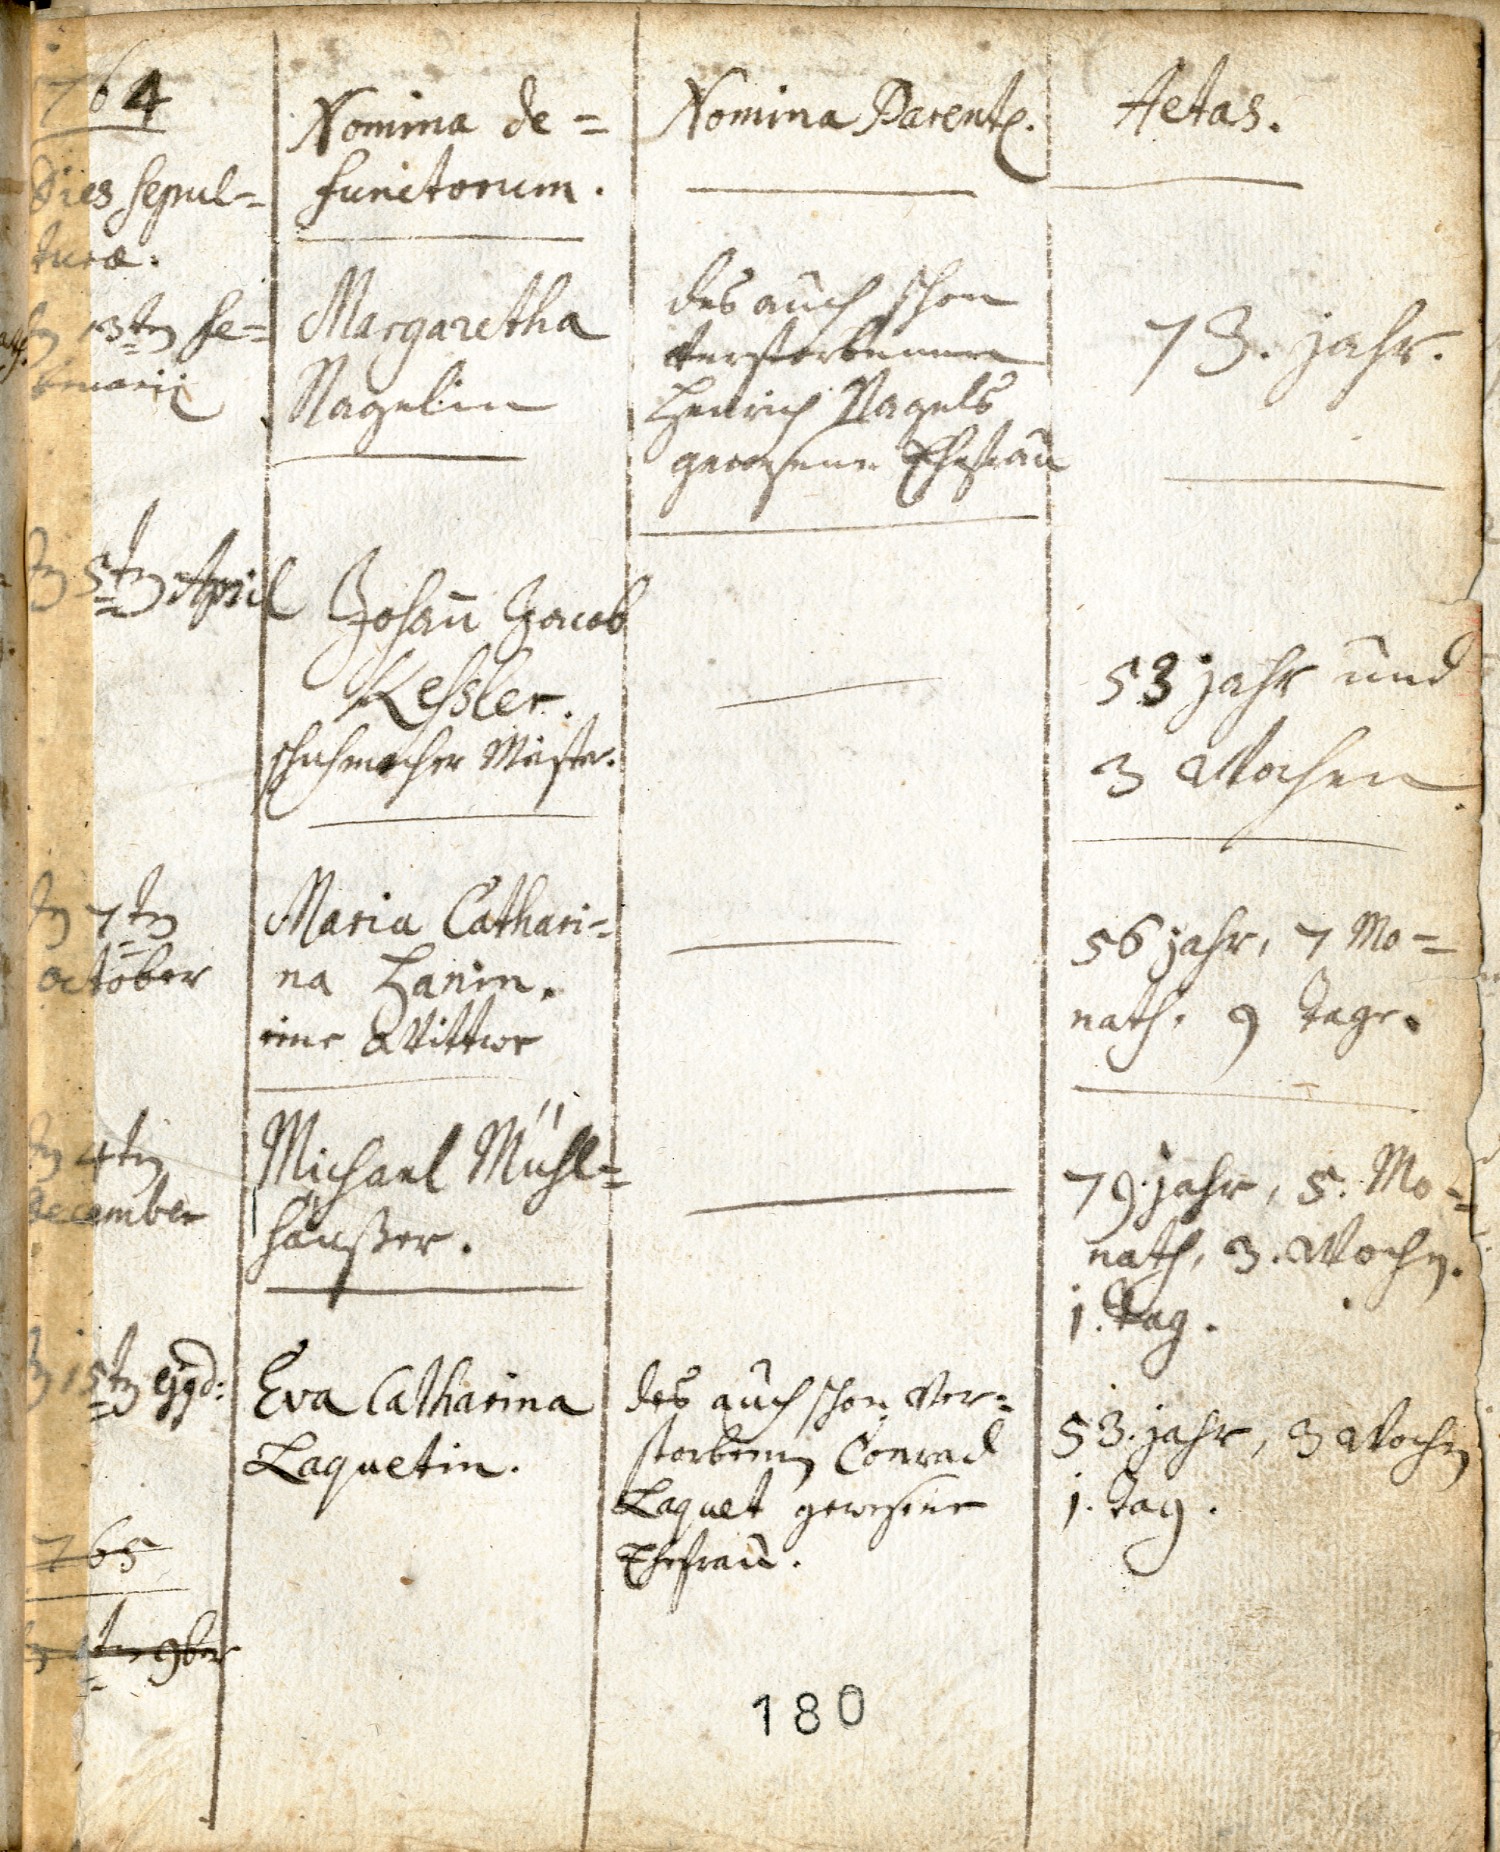 764
Dies sepul=
turæ.
Nomina de=
functorum.
Nomina Parent.
Aetas.
13ten fe=
bruarii
Margaretha
Nagelin
des auch schon
verstorbenen
Henrich Nagels
gewesene Ehefrau
73. jahr.
5ten April
Johañ Jacob
Kessler.
schuhmacher Meister.
53 jahr und
3 Wochen
7ten
october
Maria Cathari=
na Hanin.
eine Wittwe
56 jahr, 7 Mo=
nath, 9 tage.
4ten
december
Michael Mühl=
häußer.
79. jahr, 5. Mo=
nath, 3. Wochen.
1. tag.
15ten ejusd:
Eva Catharina
Laquetin.
des auch schon ver=
storbenen Conrad
Laquet gewesene
Ehefrau.
53. jahr, 3 Wochen
1. tag.
765
9ber
180